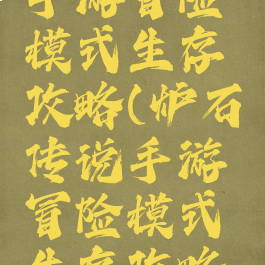 手游冒险
模式生存
攻略(炉石
传说手游
冒险模式
生存攻略